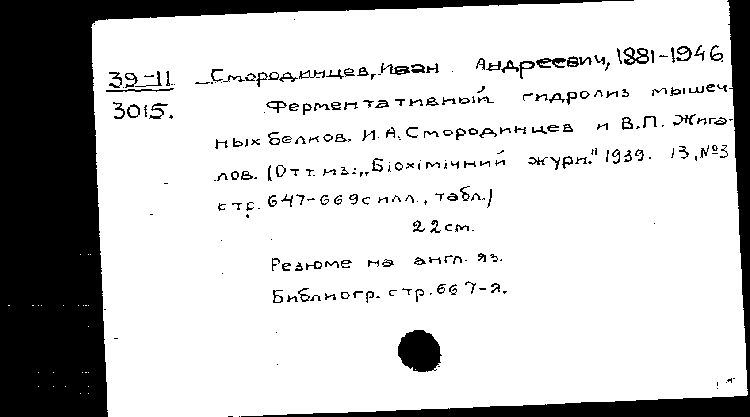 39-11 Смородинцев, Иван Андреевич, 1881-1946
3015. Ферментативный гидролиз мышеч-
ных белков. И.А. Смородинцев и В.П. Жига-
лов. (Отт. из: „Біохімічний журн." 1939. 13, №3
стр. 647-669 с илл., табл.)
22 см.
Резюме на англ. яз.
Библиогр. стр. 667-я.